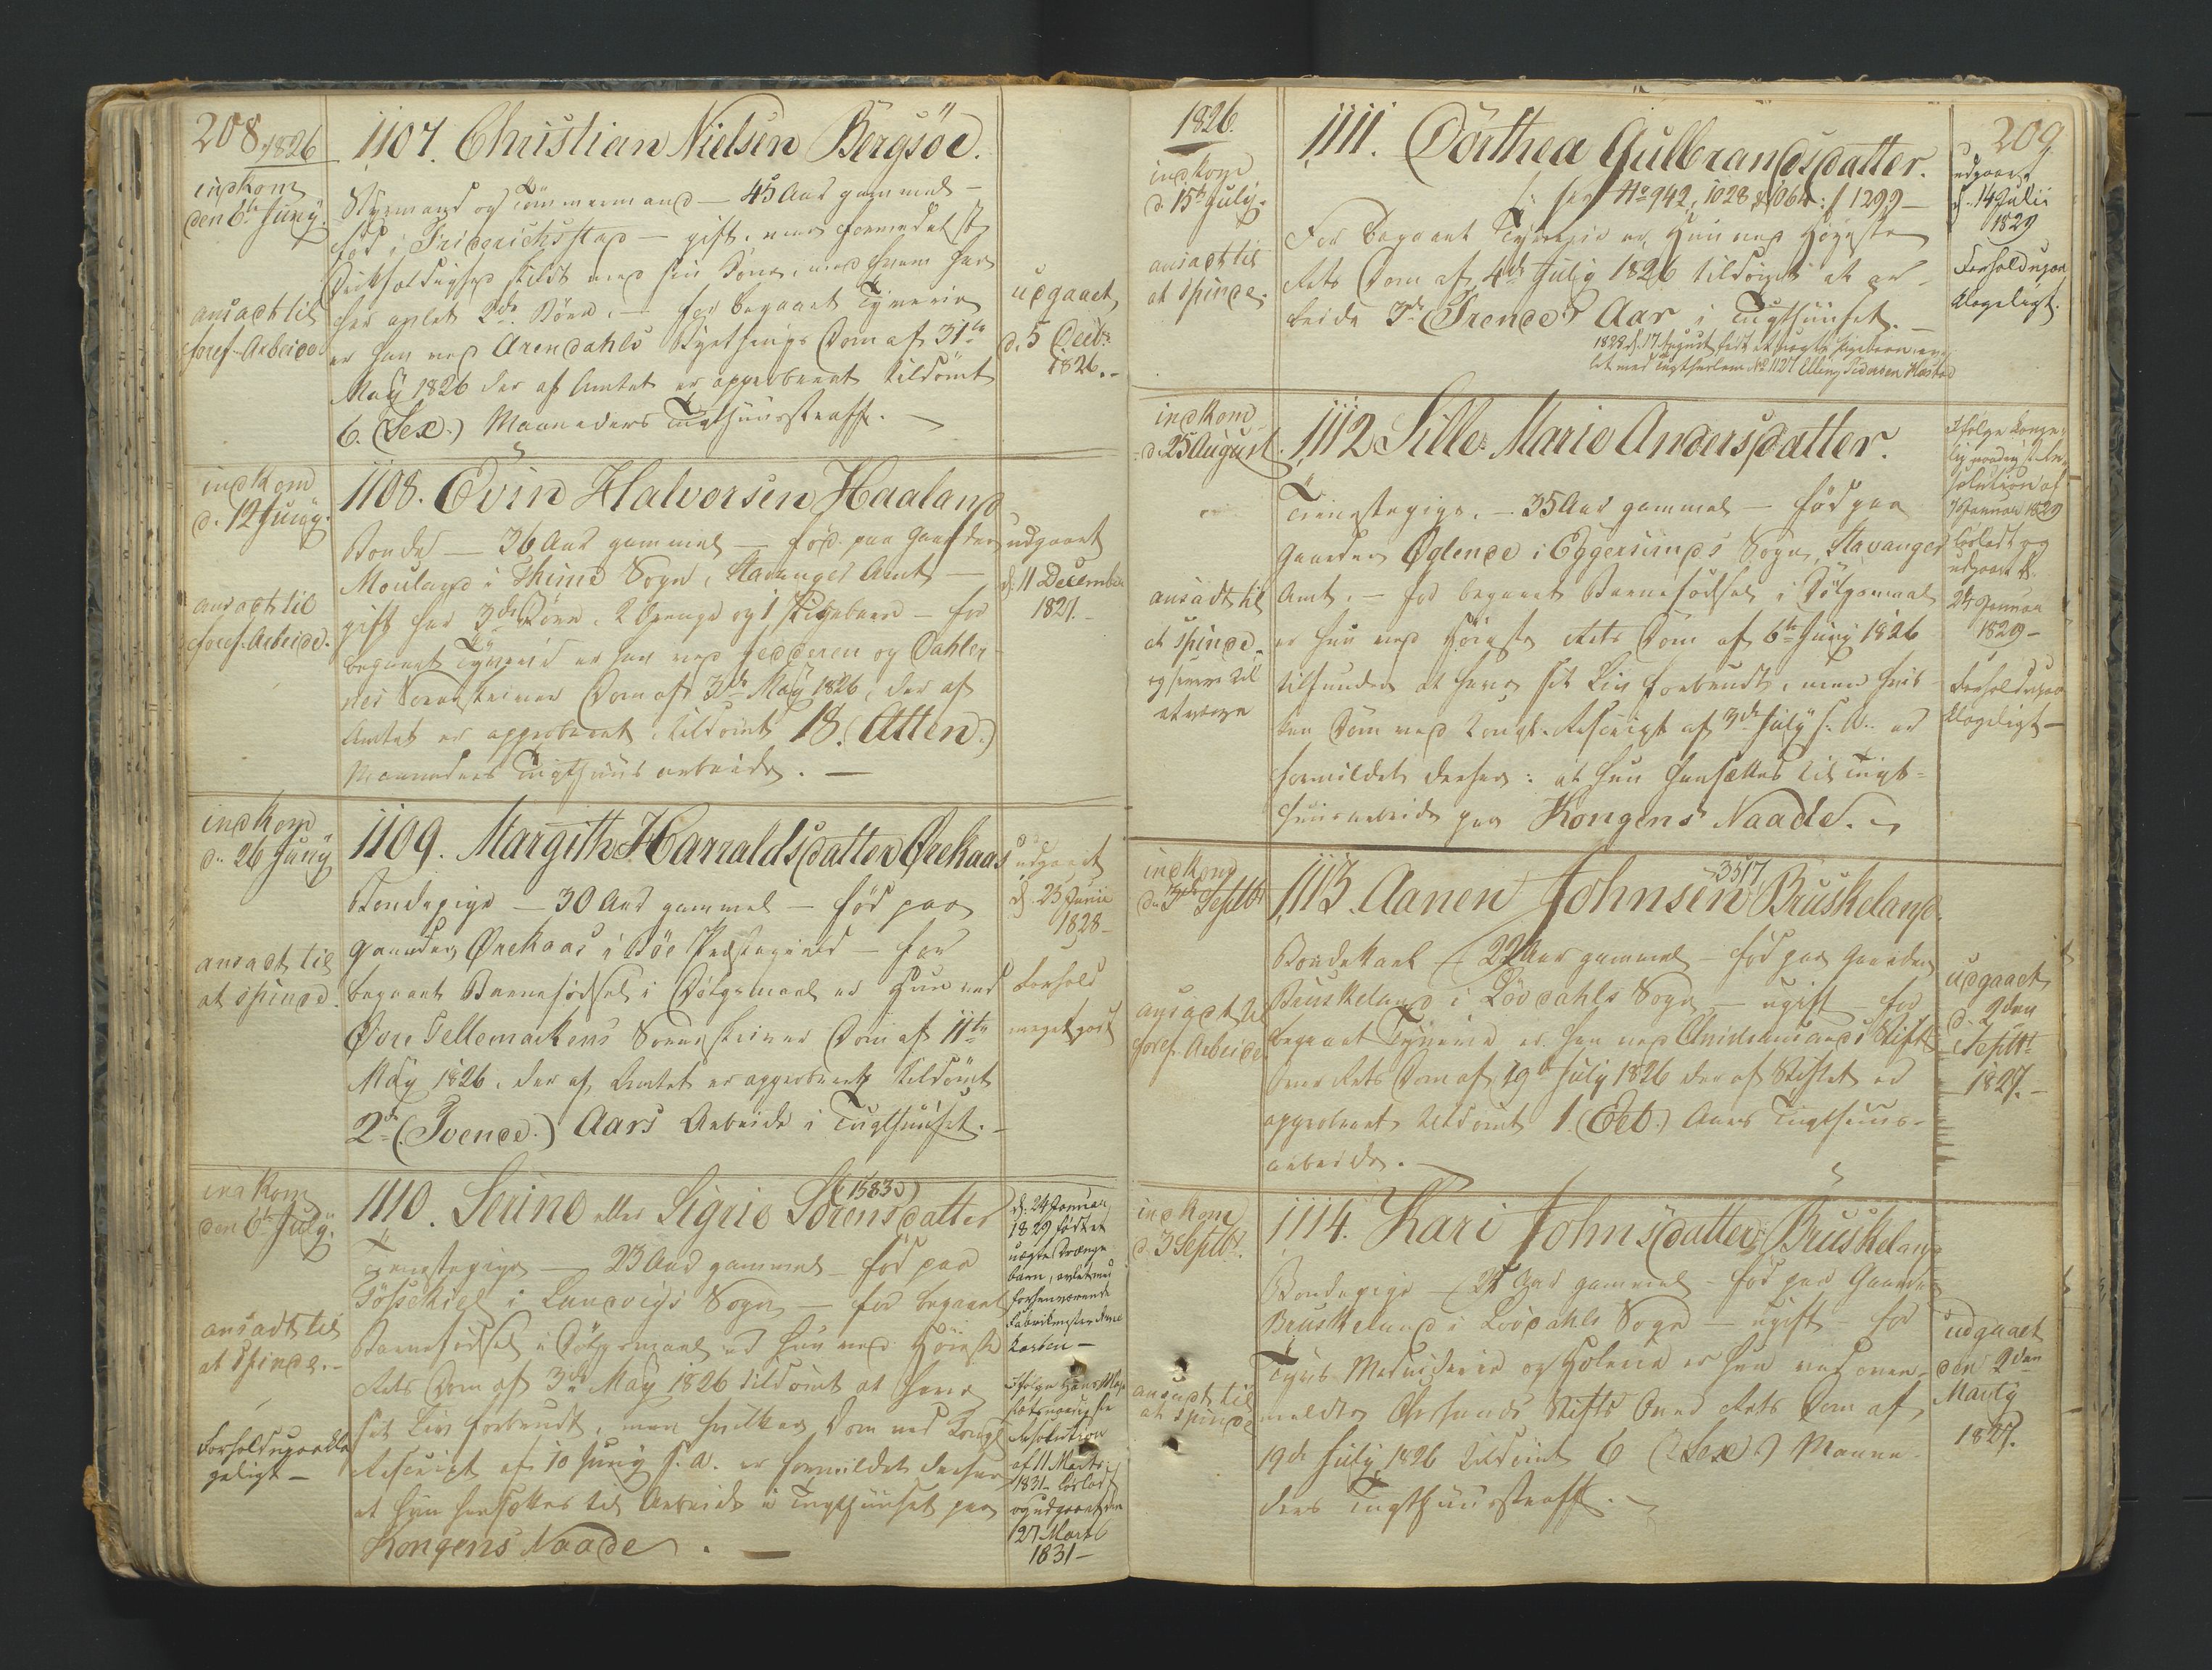 208.
1826
indkom
den 6te Juny.
ansadt til
foref. Arbeide
1107. Christian Nielsen Bergsöe.
Styrmand og Tömmermand — 45 Aar gammel —
föd i Friderichsstad — gift, men formedelst
skildt ved sin Kone, med hvem har
har avlet 2de Börn. — for begaaet Tyverie
er han ved Arendahls Byetings Dom af 31te
May 1826 der af Amtet er approberet tildömt
6. (Sex.) Maaneders Tugthuusstraff. —
udgaaet
d. 5 Decbr
1826. -
indkom
d. 12 Juny.
ansadt til
foref. Arbeide.
1108. Evin Halvorsen Haaland
Bonde — 36 Aar gammel — föd paa Gaarden
Mouland i Thime Sogn, Stavanger Amt —
gift har 3de Börn, 2 Drenge og 1 Pigebarn — for
begaaet Tyverie er han ved Jedderen og Dahler-
nes Sorenskriver Dom af 3de May 1826, der af
Amtet er approberet, tildömt 18. (Atten.)
Maaneders Tugthuusarbeide. —
udgaaet
d. 11 December
1827. -
indkom
d. 26 Juny
ansadt til
at spinde.
1109. Margith Harraldsdatter Ørekaas
Bondepige — 30 Aar gammel — föd paa
Gaarden Ørekaas i Böe Præstegield — for
begaaet Barnefödsel i Dölgsmaal er Hun ved
Øvre Tellemarkens Sorenskriver Dom af 11te
May 1826, der af Amtet er approberet tildömt
2de (Tvende.) Aars Arbeide i Tugthuuset. -
udgaaet
d. 23 Junii
1828 -
Forhold
meget godt
indkom
den 6te July.
ansadt til
at spinde. -
Forhold upaakla
geligt —
1110. Serine eller Sigrie Sörensdatter
(1583)
Tienestepige — 23 Aar gammel — föd paa
i Landvigs Sogn — for begaaet
Barnefödsel i Dölgsmaal er hun ved Höieste
Rets Dom af 3de May 1826 tildömt at have
sit Liv forbrudt, men hvilken Dom ved Kongl.
Rescript af 10 Juny s. A. er formildet derhen
at hun hensættes til Arbeide i Tugthuuset paa
Kongens Naade. —
d. 24 Januar
1829 födt et
uægte Drænge
barn, avlet med
forhenværende
Fabrikmester
Karsten —
Ifölge Hans Maje
stæts naadigste
Resolution
af 11 Marts
1831 - lösladt
og udgaaet den
27 Marts
1831 -
1826.
indkom
d. 15de July.
ansadt til
at spinde.
1111. Dorthea Gulbrandsdatter.
/: see No 942, 1028 & 1064 :/ 1299 —
For begaaet Tyverie er Hun ved Höyeste
Rets Dom af 4de July 1826 tildömt at ar-
beide 3de (Trende) Aar i Tugthuuset. —
1828 d. 17 August födt et uægte Pigebarn av-
let med Tugthuslem No 1127 Elling Pedersen Hastad
209.
udgaaet
d. 14 Julii
1829
Forhold upaa
klageligt.
indkom
d. 25 August.
ansadt til
at spinde.
og siden til
at
1112 Sille Marie Andersdatter.
Tienestepige. — 35 Aar gammel — föd paa
Gaarden Øglende i Eggersunds Sogn, Stavanger
Amt. — for begaaet Barnefödsel i Dölgsmaal
er hun ved Höieste Rets Dom af 6te Juny 1826
tilfunden at have sit Liv forbrudt, men hvil-
ken Dom ved Kongl. Rescript af 3de July s. A. er
formildet derhen: at hun hensættes til Tugt-
huusarbeide paa Kongens Naade. —
Ifölge Konge-
lig naadigste Re-
solution af
7 Januar 1829
lösladt og
udgaaet d.
24 Januar
1829 -
Forhold upaa
klageligt —
indkom
d. 3de Septbr
ansadt til
foref. Arbeide
1113. Aanen Johnsen Bruskeland.
3517
Bondekarl — 22 Aar gammel — föd paa Gaarden
Bruskeland i Lövdahls Sogn — ugift — for
begaaet Tyverie er han ved Christiansands Stifts
Over Rets Dom af 19de July 1826 der af Stiftet er
approberet tildömt 1 (Eet.) Aars Tugthuus-
arbeide. —
udgaaet
d. 2den
Septbr
1827. -
indkom
d. 3 Septbr.
ansadt til
at spinde
1114. Kari Johnsdatter Bruskeland
Bondepige — 24 Aar gammel — föd paa Gaarden
Bruskeland i Lövdahls Sogn — ugift — for
Tyvs Medviderie og Hælerie er hun ved oven-
meldte Chrsands Stifts Over Rets Dom af
19de July 1826 tildömt 6 (Sex.) Maane-
ders Tugthuusstraff. —
udgaaet
den 2den
Marty
1827.